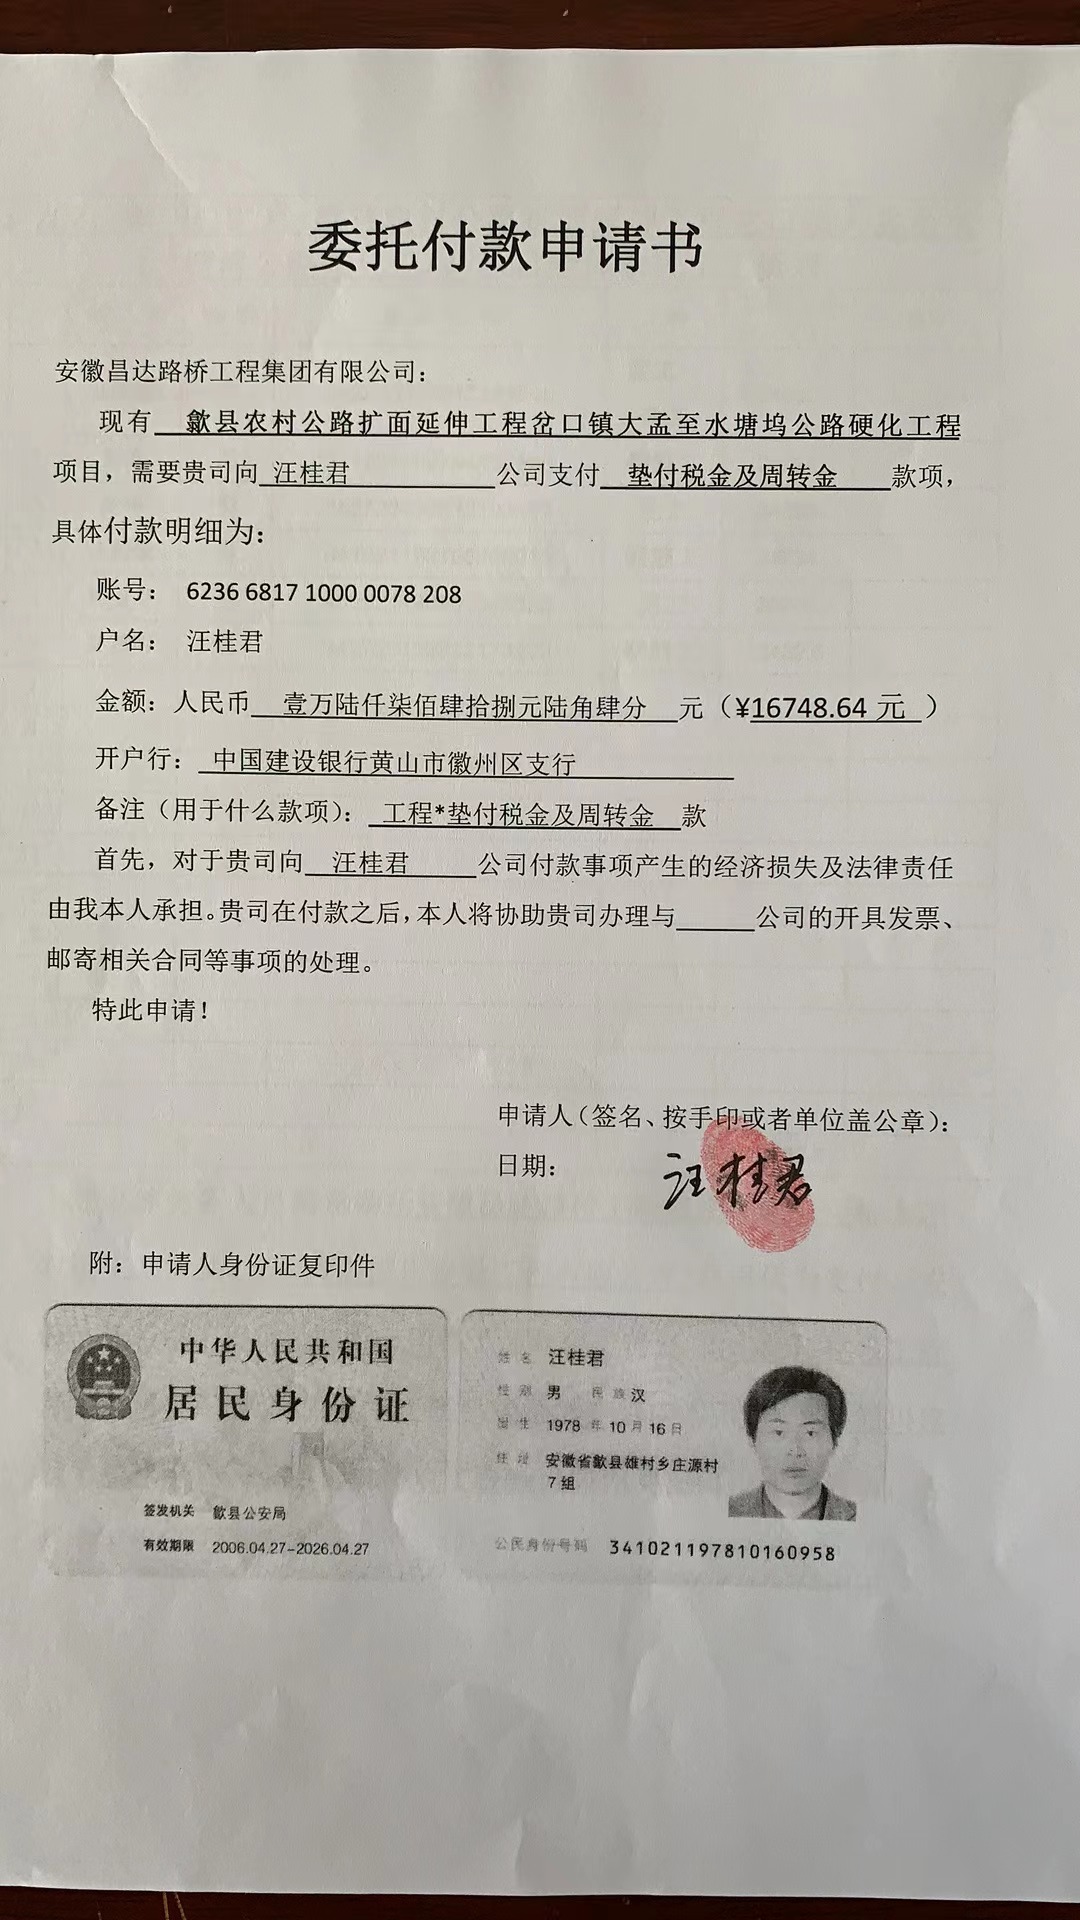 委托付款申请书
安徽昌达路桥工程集团有限公司：
现有 歙县农村公路扩面延伸工程岔口镇大孟至水塘坞公路硬化工程
项目，需要贵司向 汪桂君 公司支付 垫付税金及周转金 款项，
具体付款明细为：
账号： 6236 6817 1000 0078 208
户名： 汪桂君
金额：人民币 壹万陆仟柒佰肆拾捌元陆角肆分 元（¥16748.64 元 ）
开户行： 中国建设银行黄山市徽州区支行
备注（用于什么款项）： 工程*垫付税金及周转金 款
首先，对于贵司向 汪桂君 公司付款事项产生的经济损失及法律责任
由我本人承担。贵司在付款之后，本人将协助贵司办理与______公司的开具发票、
邮寄相关合同等事项的处理。
特此申请！
申请人（签名、按手印或者单位盖公章）：
日期：
汪桂君
附：申请人身份证复印件
中华人民共和国
居民身份证
签发机关 歙县公安局
有效期限 2006.04.27-2026.04.27
姓名 汪桂君
性别 男 民族 汉
出生 1978 年 10 月 16 日
住址 安徽省歙县雄村乡庄源村
7组
公民身份号码 341021197810160958